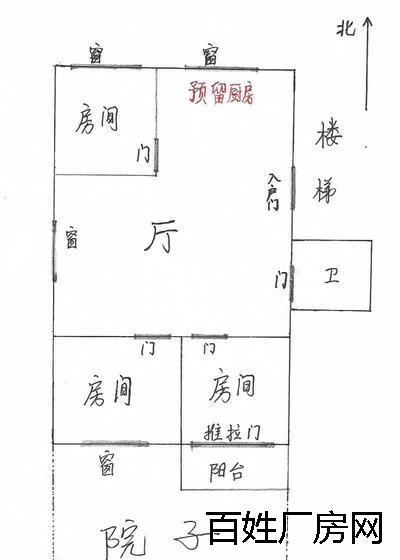 北
窗
窗
预留厨房
房间
楼梯
门
入户门
窗
厅
门
卫
门
门
房间
房间
推拉门
窗
阳台
院子
百姓厂房网